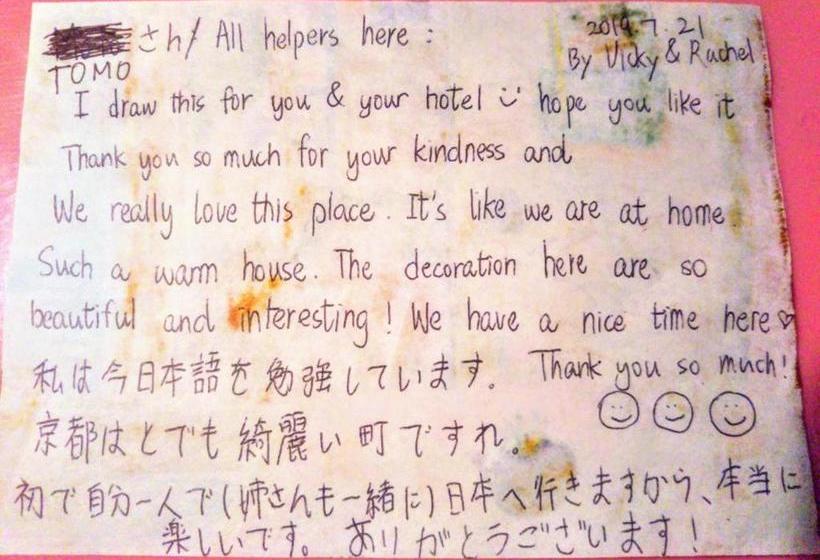 さん/ All helpers here :
2019.7.21
TOMO
By Vicky & Rachel
I draw this for you & your hotel hope you like it
Thank you so much for your kindness and
We really love this place. It's like we are at home
Such a warm house. The decoration here are so
beautiful and interesting! We have a nice time here♡
私は今日本語を勉強しています。 Thank you so much!
京都はとでも綺麗い町ですれ。
初で自分一人で(姉さんも一緒に)日本へ行きますから、本当に
楽しいです。 ありがとうございます!